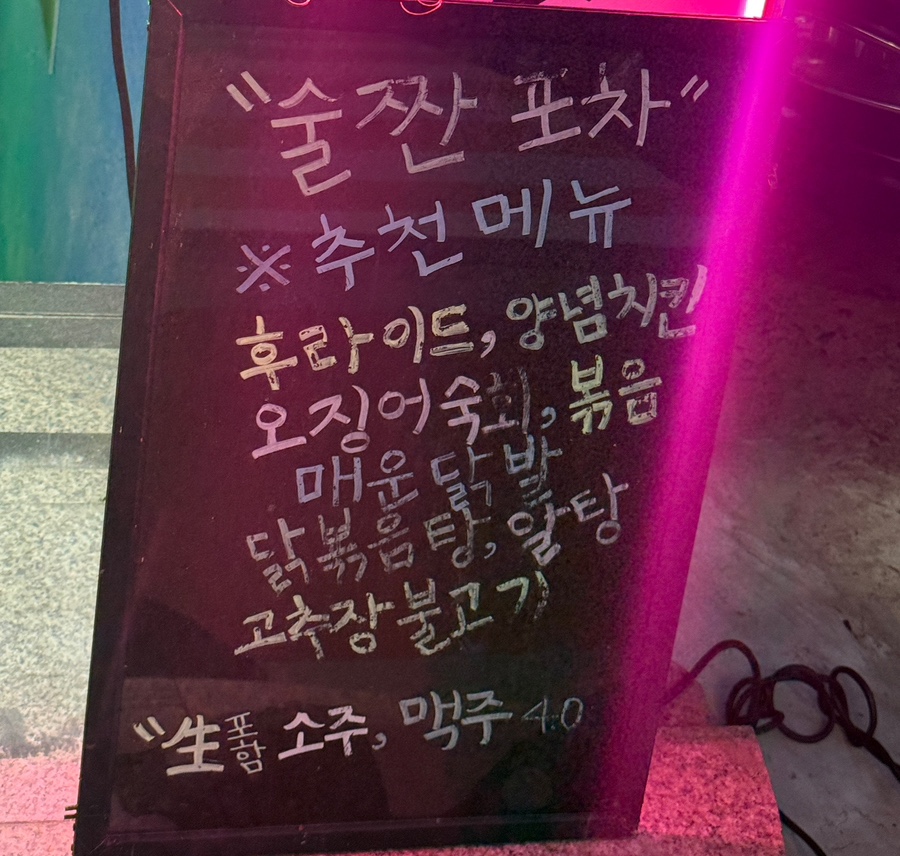 "술짠 포차"
※추천메뉴
후라이드, 양념치킨
오징어숙회, 볶음
매운 닭발
닭볶음탕, 알탕
고추장불고기
"生포함 소주, 맥주 4.0